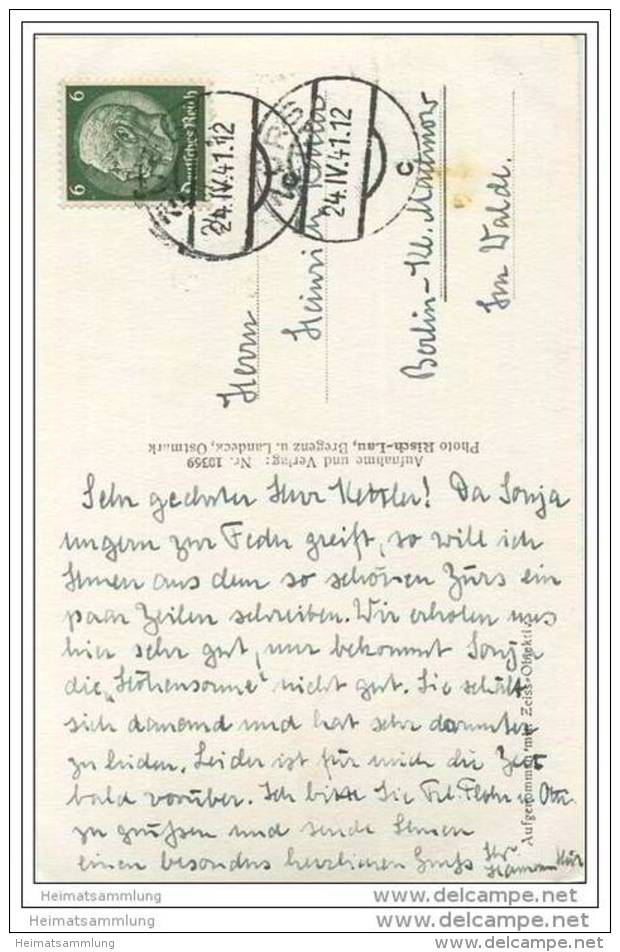 6
6
Deutsches Reich
24.IV.41.12
24.IV.41.12
c
Herrn
Heinrich
Berlin-Kl. Machnow
Im Walde.
Aufnahme und Verlag: Nr. 10359
Photo Risch-Lau, Bregenz u. Landeck, Ostmark
Sehr geehrter Herr Kettler! Da Sonja
ungern zur Feder greift, so will ich
Ihnen aus dem so schönen Zürs ein
paar Zeilen schreiben. Wir erholen uns
hier sehr gut, nur bekommt Sonja
die „Höhensonne" nicht gut. Sie schält
sich dauernd und hat sehr darunter
zu leiden. Leider ist für mich die Zeit
bald vorüber. Ich bitte Sie Frl. u.
zu grüßen und sende Ihnen
einen besonders herzlichen Gruß Ihr
Aufgenommen mit Zeiss-Objektiv
Heimatsammlung
Heimatsammlung
Heimatsammlung
delcampe.net
delcampe.net
delcampe.net